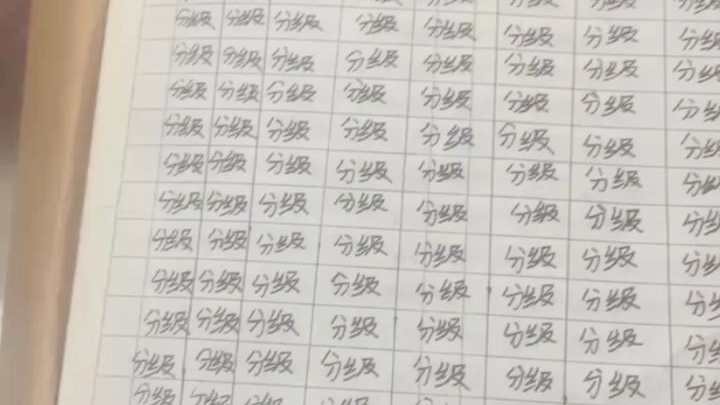 分级 分级 分级 分级 分级 分级 分级 分级
分级 分级 分级 分级 分级 分级 分级 分级
分级 分级 分级 分级 分级 分级 分级 分级
分级 分级 分级 分级 分级 分级 分级 分级
分级 分级 分级 分级 分级 分级 分级 分级
分级 分级 分级 分级 分级 分级 分级 分级
分级 分级 分级 分级 分级 分级 分级 分级
分级 分级 分级 分级 分级 分级 分级 分级
分级 分级 分级 分级 分级 分级 分级 分级
分级 分级 分级 分级 分级 分级 分级 分级
分级 分级